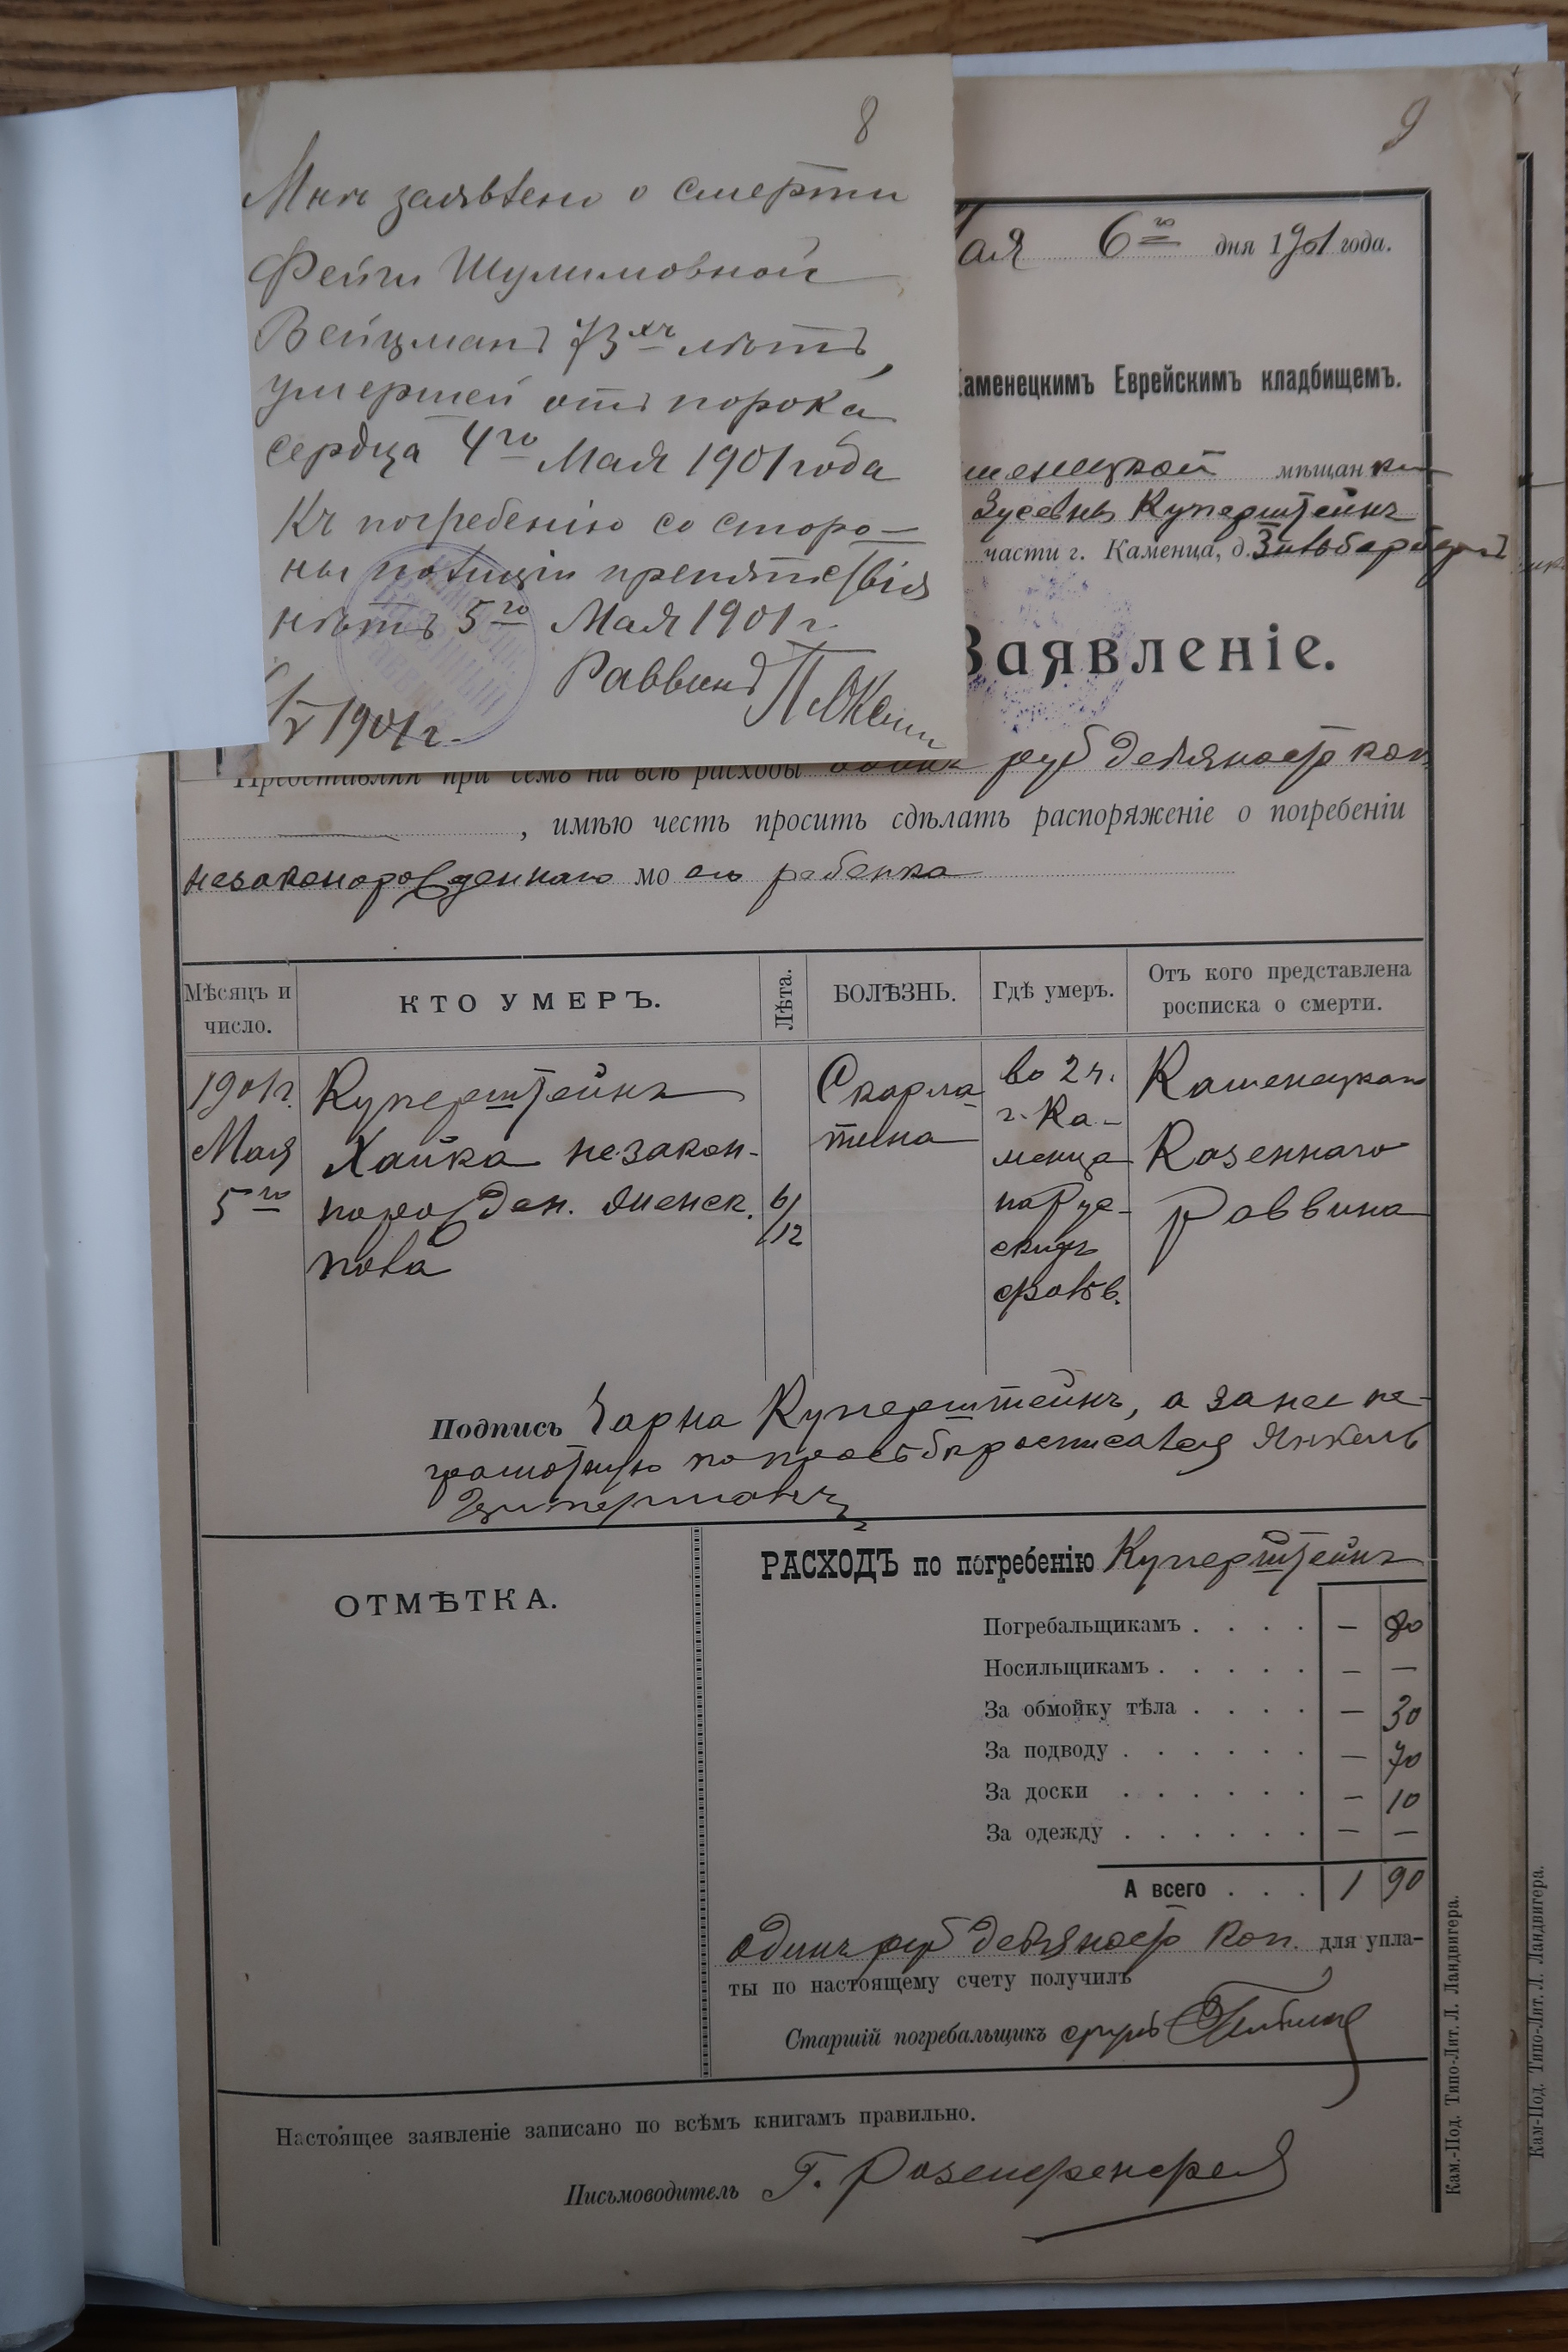 8
Мнѣ заявлено о смерти
Фейги Шулимовной
Вейцманъ 73хъ лѣтъ,
умершей отъ порока
сердца 4го Мая 1901 года
Къ погребенію со сторо-
ны полиціи препятствія
нѣтъ 5го Мая 1901 г.
Раввинъ
V 1901 г.
9
ая 6го дня 1901 года.
Каменецкимъ Еврейскимъ кладбищемъ.
менецкой мѣщанки
Зусевны Куперштейнъ
части г. Каменца, д. Зильберберга
Заявленіе.
Представляя при семъ на всѣ расходы одинъ руб девяносто коп.
, имѣю честь просить сдѣлать распоряженіе о погребеніи
незаконорожденнаго моего ребенка
Мѣсяцъ и число.
КТО УМЕРЪ.
Лѣта.
БОЛѢЗНЬ.
Гдѣ умеръ.
Отъ кого представлена росписка о смерти.
1901 г.
Мая
5го
Куперштейнъ
Хайка незакон-
порожден. женск.
пола
6/12
Скарла-
тина
во 2 ч.
г. Ка-
менца
на Рус-
скихъ
фольв.
Каменецкаго
Казеннаго
Раввина
Подпись Чарна Куперштейнъ, а за нее не-
грамотную по просьбѣ росписался Янкель
Цитерманъ
ОТМѢТКА.
РАСХОДЪ по погребенію Куперштейнъ
Погребальщикамъ . . . . — 80
Носильщикамъ . . . . . — —
За обмойку тѣла . . . . — 30
За подводу . . . . . . — 70
За доски . . . . . . — 10
За одежду . . . . . . — —
А всего . . . 1 90
Одинъ руб девяносто коп. для упла-
ты по настоящему счету получилъ
Старшій погребальщикъ
Настоящее заявленіе записано по всѣмъ книгамъ правильно.
Письмоводитель Г. Розенфенфед
Кам.-Под. Типо-Лит. Л. Ландвигера.
Кам-Под. Типо-Лит. Л. Ландвигера.